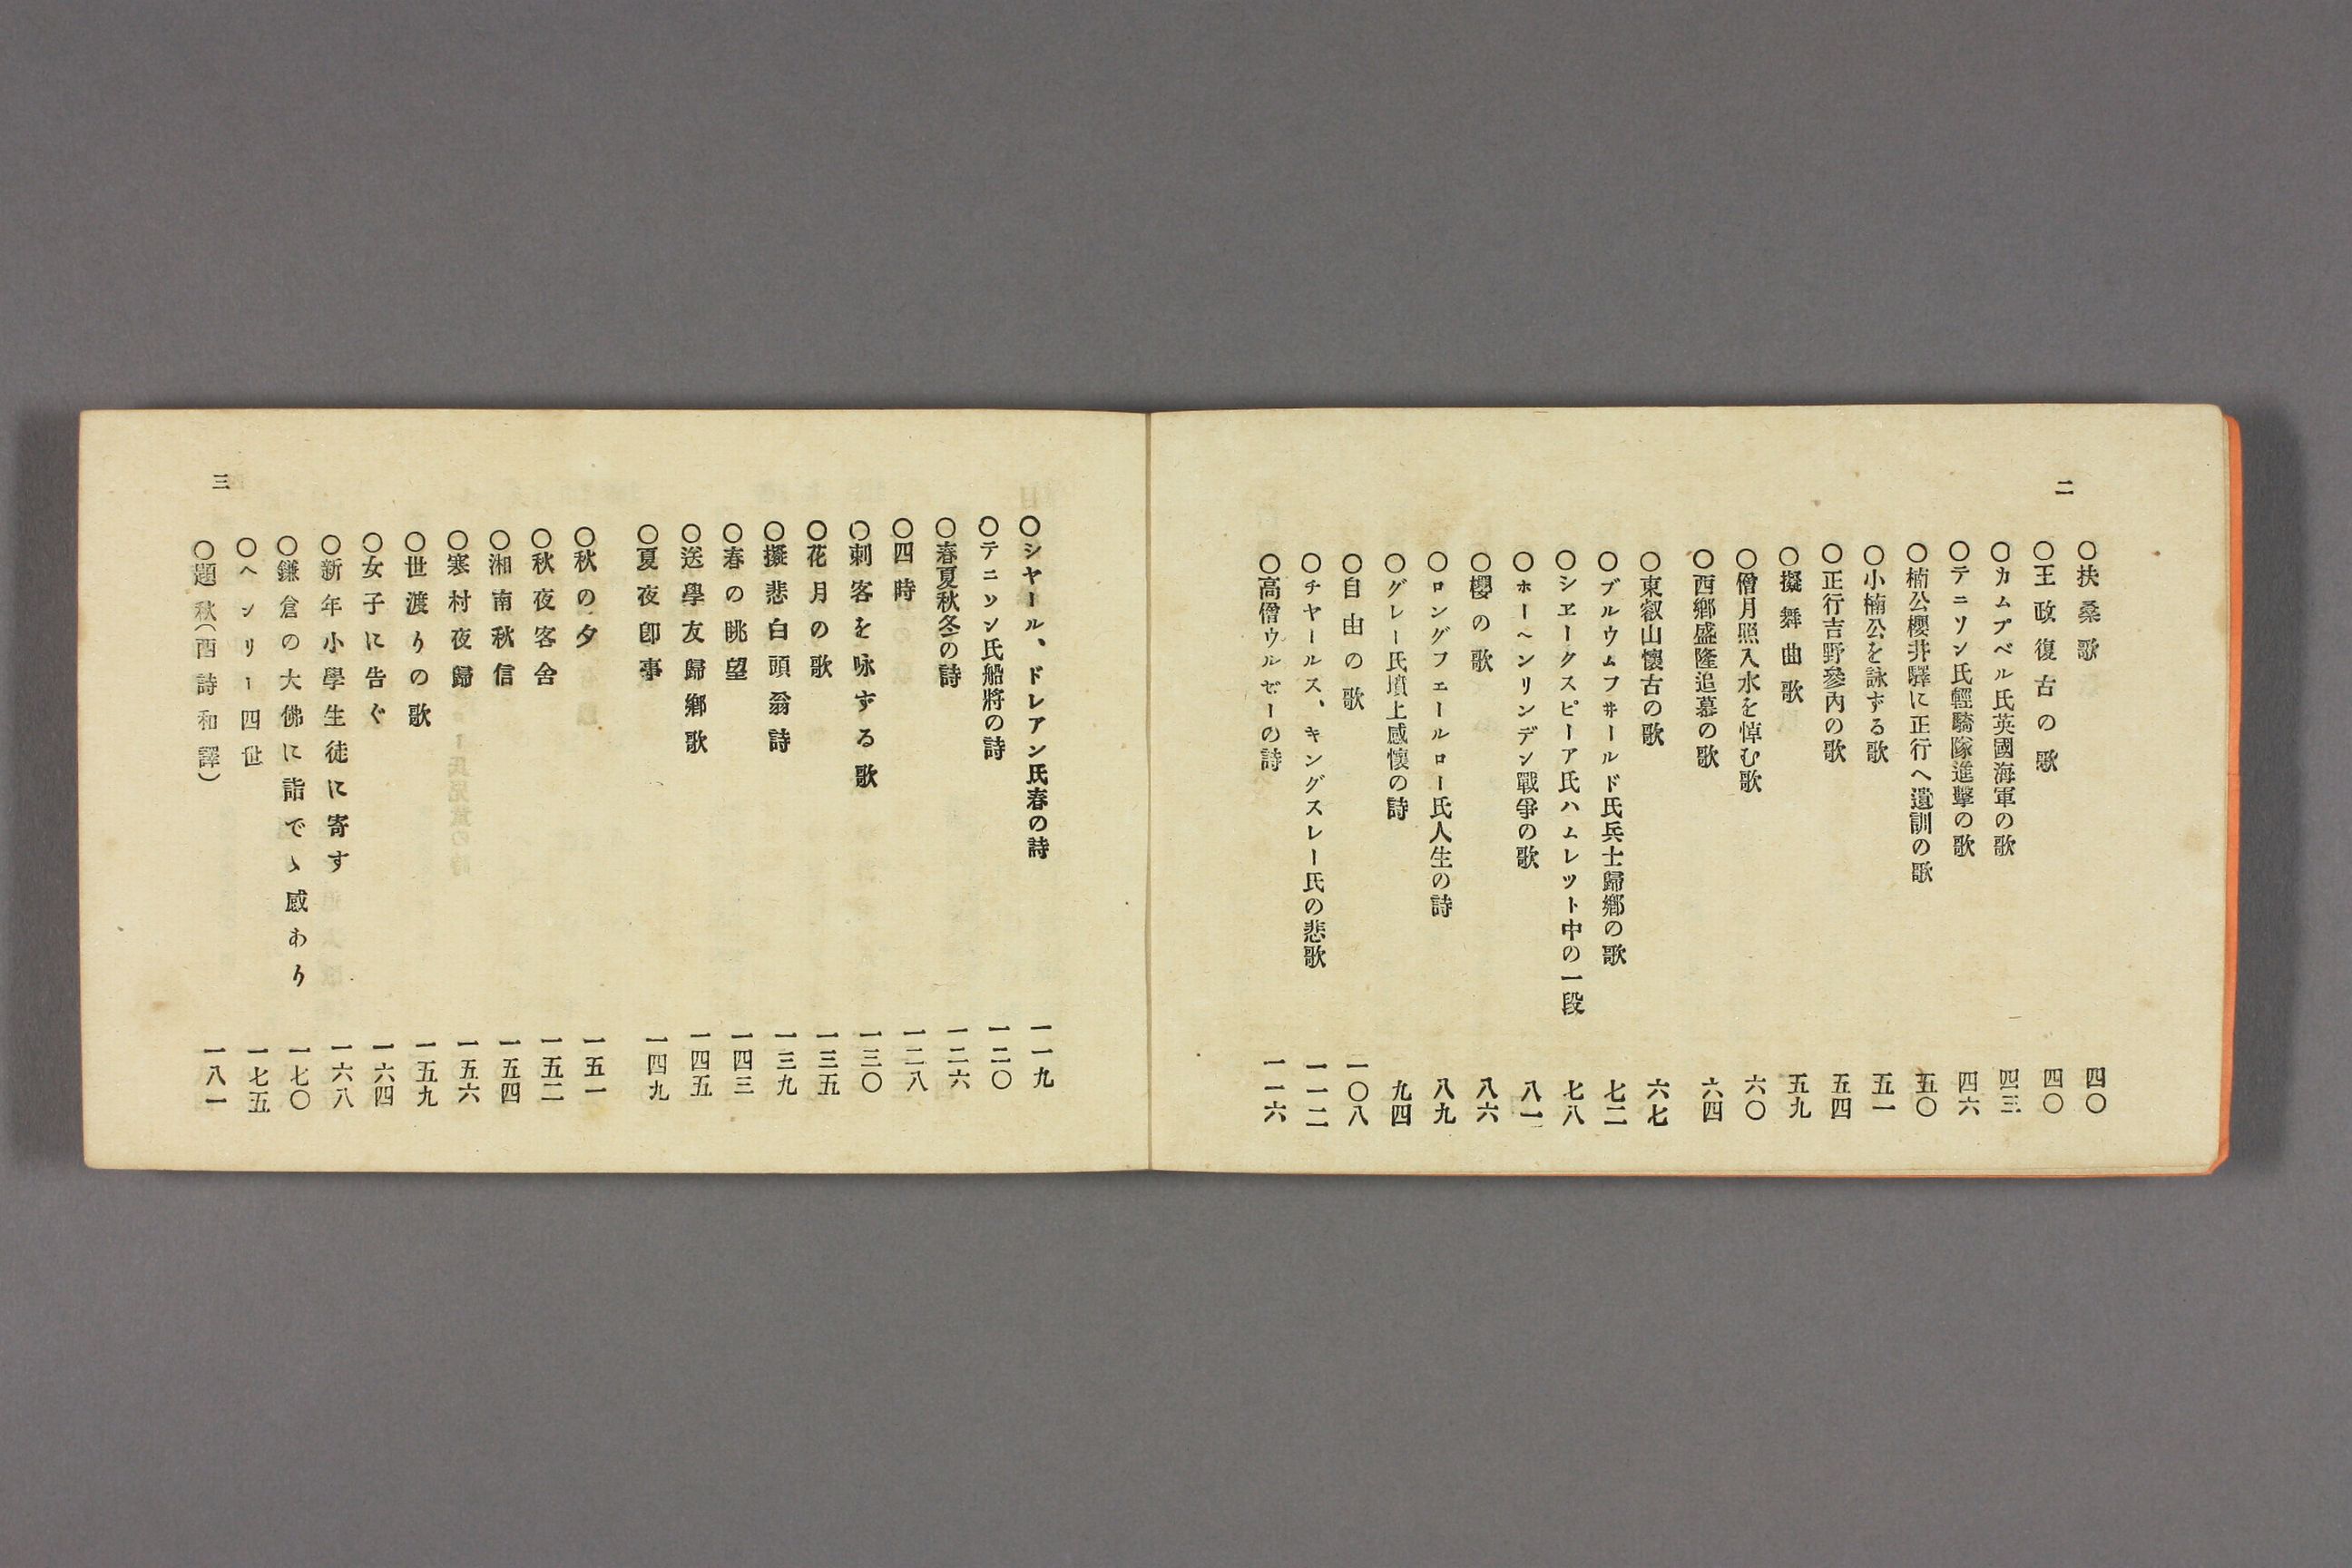 二
○扶桑歌 四〇
○王政復古の歌 四〇
○カムプベル氏英國海軍の歌 四三
○テニソン氏輕騎隊進擊の歌 四六
○楠公櫻井驛に正行へ遺訓の歌 五〇
○小楠公を詠ずる歌 五一
○正行吉野參內の歌 五四
○擬舞曲歌 五九
○僧月照入水を悼む歌 六〇
○西鄕盛隆追慕の歌 六四
○東叡山懷古の歌 六七
○ブルウムフヰールド氏兵士歸鄕の歌 七二
○シヱークスピーア氏ハムレツト中の一段 七八
○ホーヘンリンデン戰爭の歌 八一
○櫻の歌 八六
○ロングフエールロー氏人生の詩 八九
○グレー氏墳上感懷の詩 九四
○自由の歌 一〇八
○チヤールス、キングスレー氏の悲歌 一一二
○高僧ウルゼーの詩 一一六
○シヤール、ドレアン氏春の詩 一一九
○テニソン氏船將の詩 一二〇
○春夏秋冬の詩 一二六
○四時 一二八
○刺客を咏ずる歌 一三〇
○花月の歌 一三五
○擬悲白頭翁詩 一三九
○春の眺望 一四三
○送學友歸鄕歌 一四五
○夏夜卽事 一四九
○秋の夕 一五一
○秋夜客舍 一五二
○湘南秋信 一五四
○寒村夜歸 一五六
○世渡りの歌 一五九
○女子に告ぐ 一六四
○新年小學生徒に寄す 一六八
○鎌倉の大佛に詣でゝ感あり 一七〇
○ヘンリー四世 一七五
○題秋(西詩和譯) 一八一
三